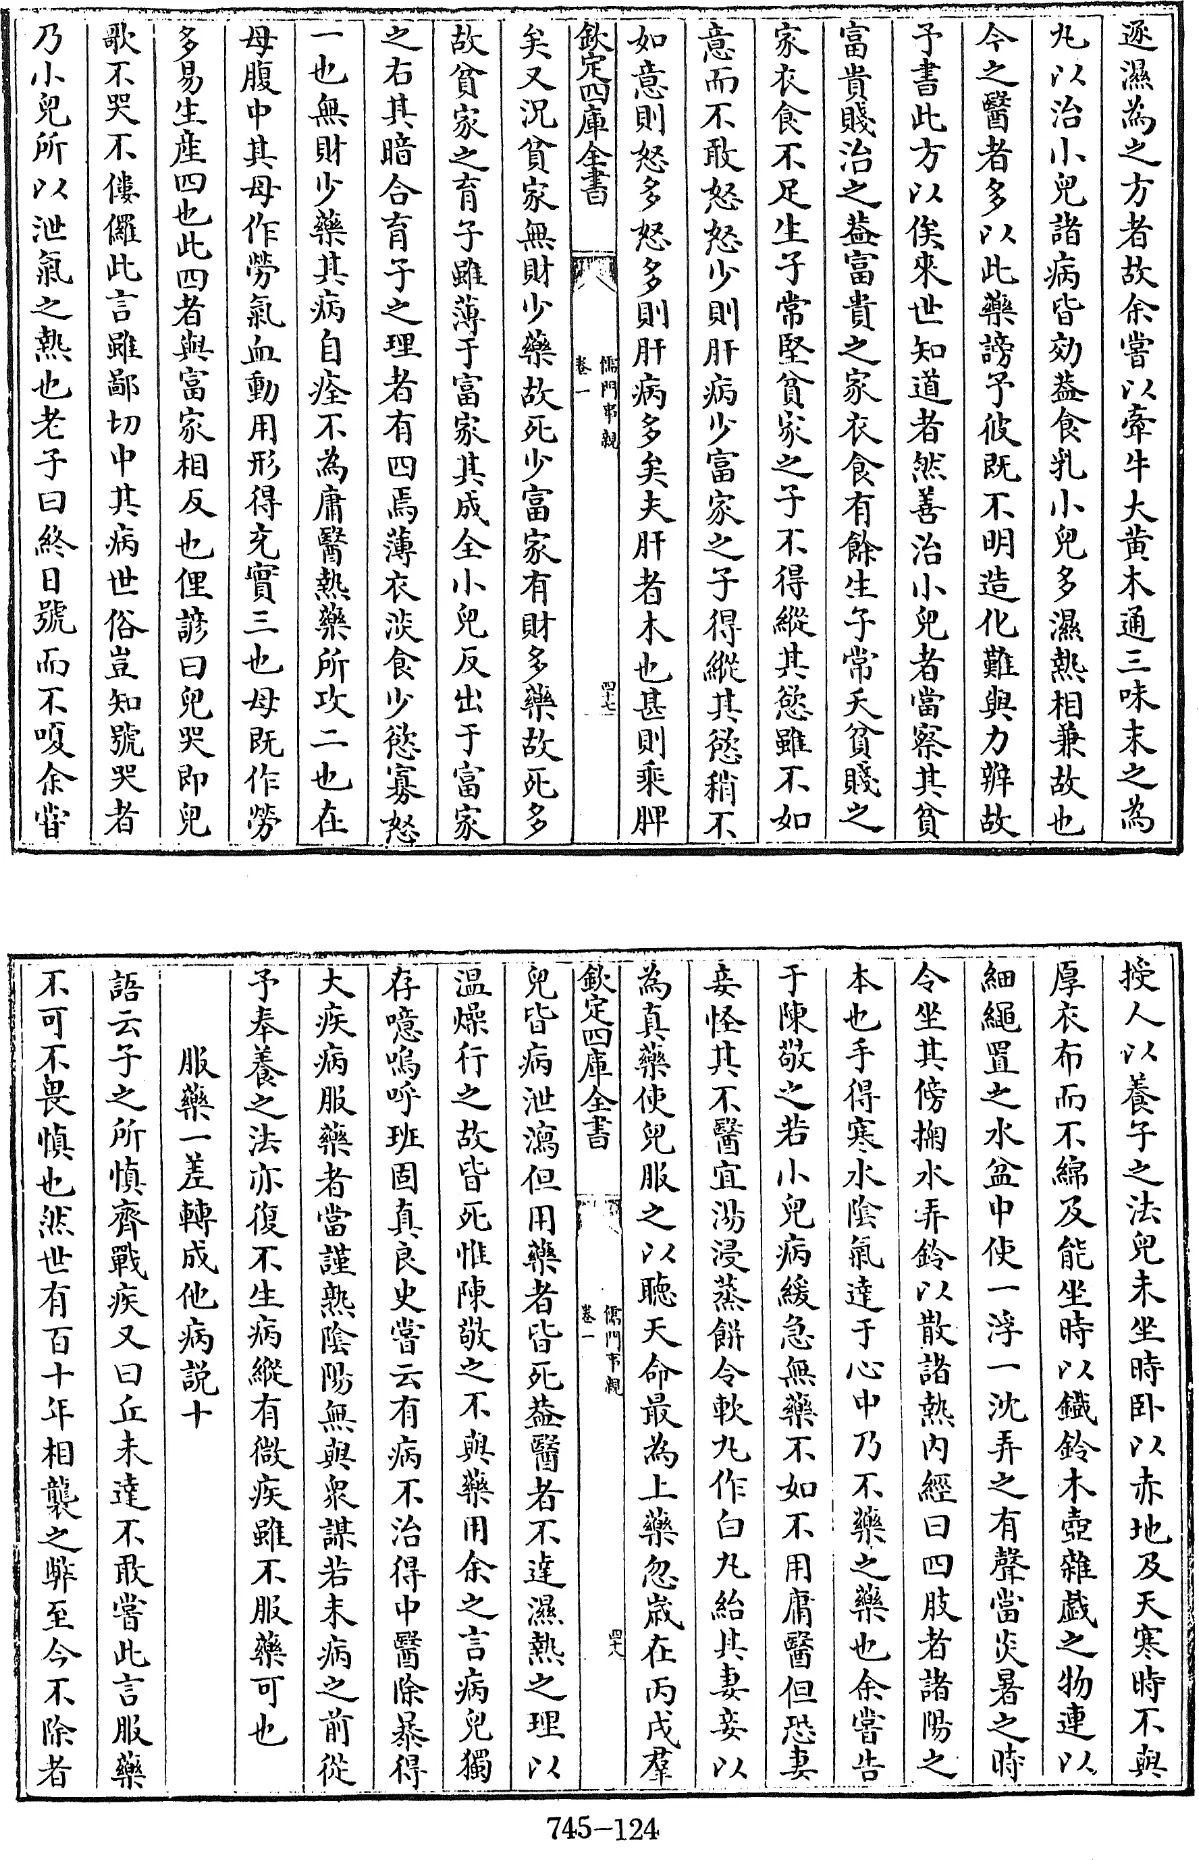 逐濕為之方者故余嘗以牽牛大黄木通三味末之為
丸以治小兒諸病皆効葢食乳小兒多濕熱相兼故也
今之醫者多以此藥謗予彼既不明造化難與力辯故
予書此方以俟來世知道者然善治小兒者當察其貧
富貴賤治之葢富貴之家衣食有餘生子常夭貧賤之
家衣食不足生子常堅貧家之子不得縱其慾雖不如
意而不敢怒怒少則肝病少富家之子得縱其慾稍不
如意則怒多怒多則肝病多矣夫肝者木也甚則乘脾
欽定四庫全書
儒門事親
卷一
四十七
矣又況貧家無財少藥故死少富家有財多藥故死多
故貧家之育子雖薄于富家其成全小兒反出于富家
之右其暗合育子之理者有四焉薄衣淡食少慾寡怒
一也無財少藥其病自痊不為庸醫熱藥所攻二也在
母腹中其母作勞氣血動用形得充實三也母既作勞
多易生産四也此四者與富家相反也俚諺曰兒哭即兒
歌不哭不僂儸此言雖鄙切中其病世俗豈知號哭者
乃小兒所以泄氣之熱也老子曰終日號而不嗄余嘗
授人以養子之法兒未坐時卧以赤地及天寒時不與
厚衣布而不綿及能坐時以鐵鈴木壺雜戲之物連以
細繩置之水盆中使一浮一沈弄之有聲當炎暑之時
令坐其傍掬水弄鈴以散諸熱内經曰四肢者諸陽之
本也手得寒水陰氣達于心中乃不藥之藥也余嘗告
于陳敬之若小兒病緩急無藥不如不用庸醫但恐妻
妾怪其不醫宜湯浸蒸餅令軟丸作白丸紿其妻妾以
為真藥使兒服之以聽天命最為上藥忽歳在丙戌羣
欽定四庫全書
儒門事親
卷一
四十八
兒皆病泄瀉但用藥者皆死葢醫者不達濕熱之理以
温燥行之故皆死惟陳敬之不與藥用余之言病兒獨
存噫嗚呼班固真良史嘗云有病不治得中醫除暴得
大疾病服藥者當謹熟陰陽無與衆謀若未病之前從
予奉養之法亦復不生病縱有微疾雖不服藥可也
服藥一差轉成他病説十
語云子之所慎齊戰疾又曰丘未達不敢嘗此言服藥
不可不畏慎也然世有百十年相襲之弊至今不除者
745-124